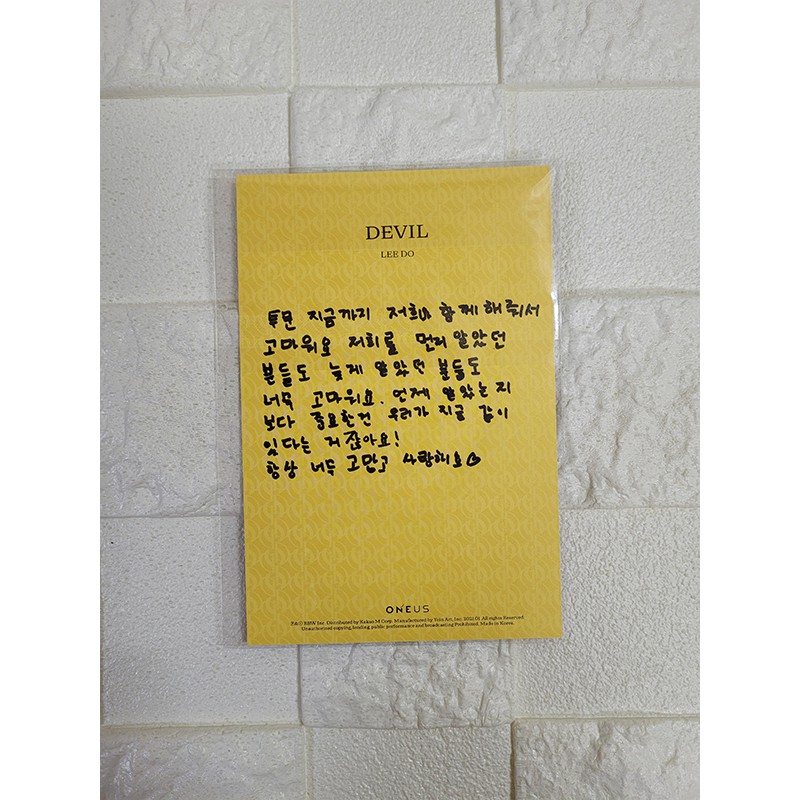 DEVIL
LEE DO
투문 지금까지 저희와 함께해줘서
고마워요 저희를 먼저 알았던
분들도 늦게 알았던 분들도
너무 고마워요. 언제 알았는지
보다 중요한건 우리가 지금 같이
있다는 거 잖아요!
항상 너무 고맙고 사랑해요♡
ONEUS
P&© RBW Inc. Distributed by Kakao M Corp. Manufactured by Yein Art, Inc. 2021.01 All rights Reserved
Unauthorized copying, lending, public performance and broadcasting Prohibited. Made in Korea.